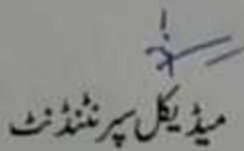 میڈیکل سپرنٹنڈنٹ